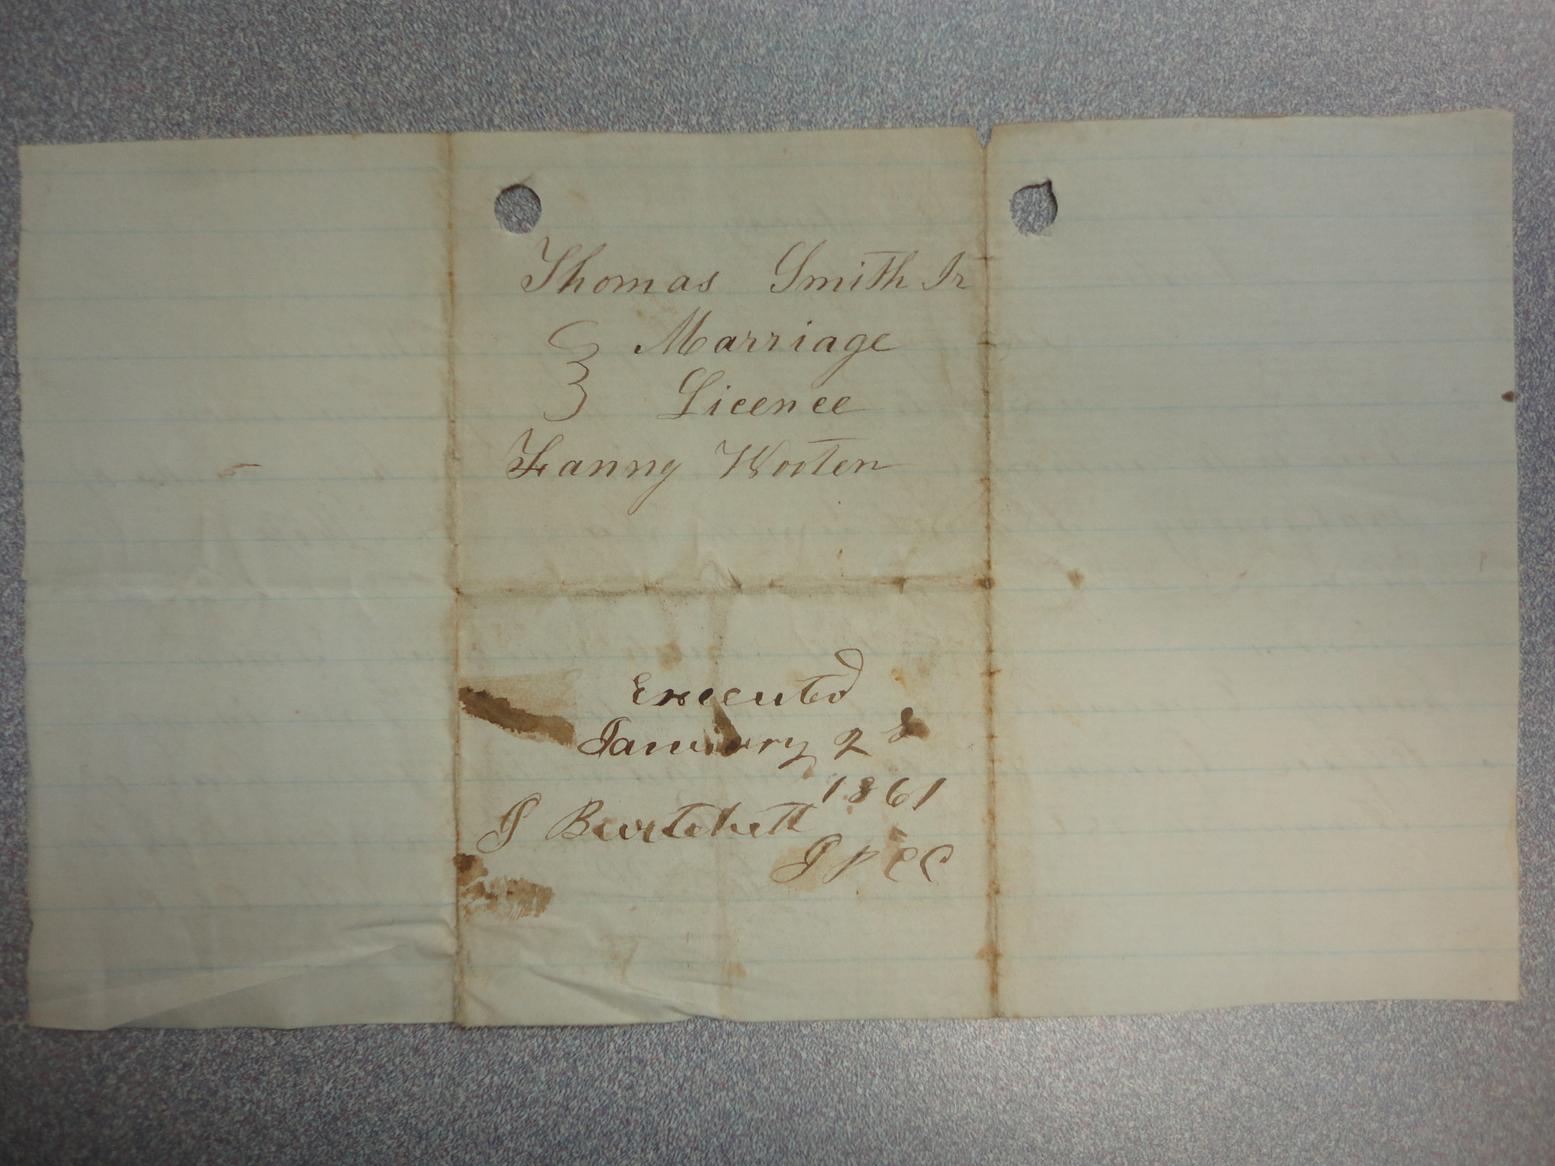 Thomas Smith Jr
Marriage
Licence
Fanny Wooten
Executed
January 28
1861
J Burtchett
J P C C